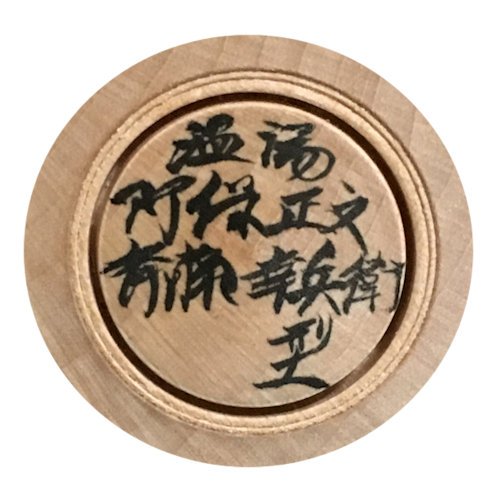 温湯
阿保正文
斉藤幸兵衛
型